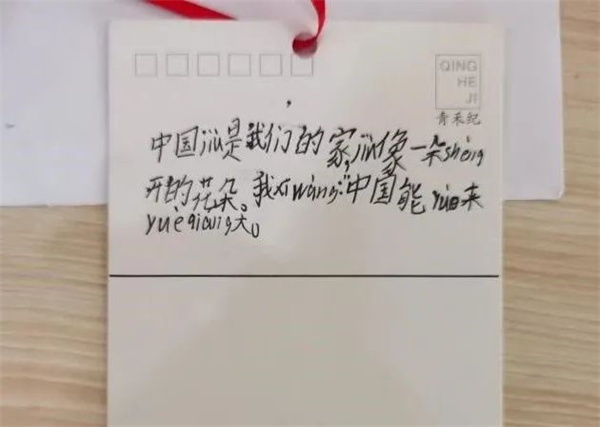 QING
HE
JI
青禾纪
中国jiù是我们的家,jiù像一朵shèng
开的花朵。我xīwàng:"中国能yuè来
yuèqiáng大。